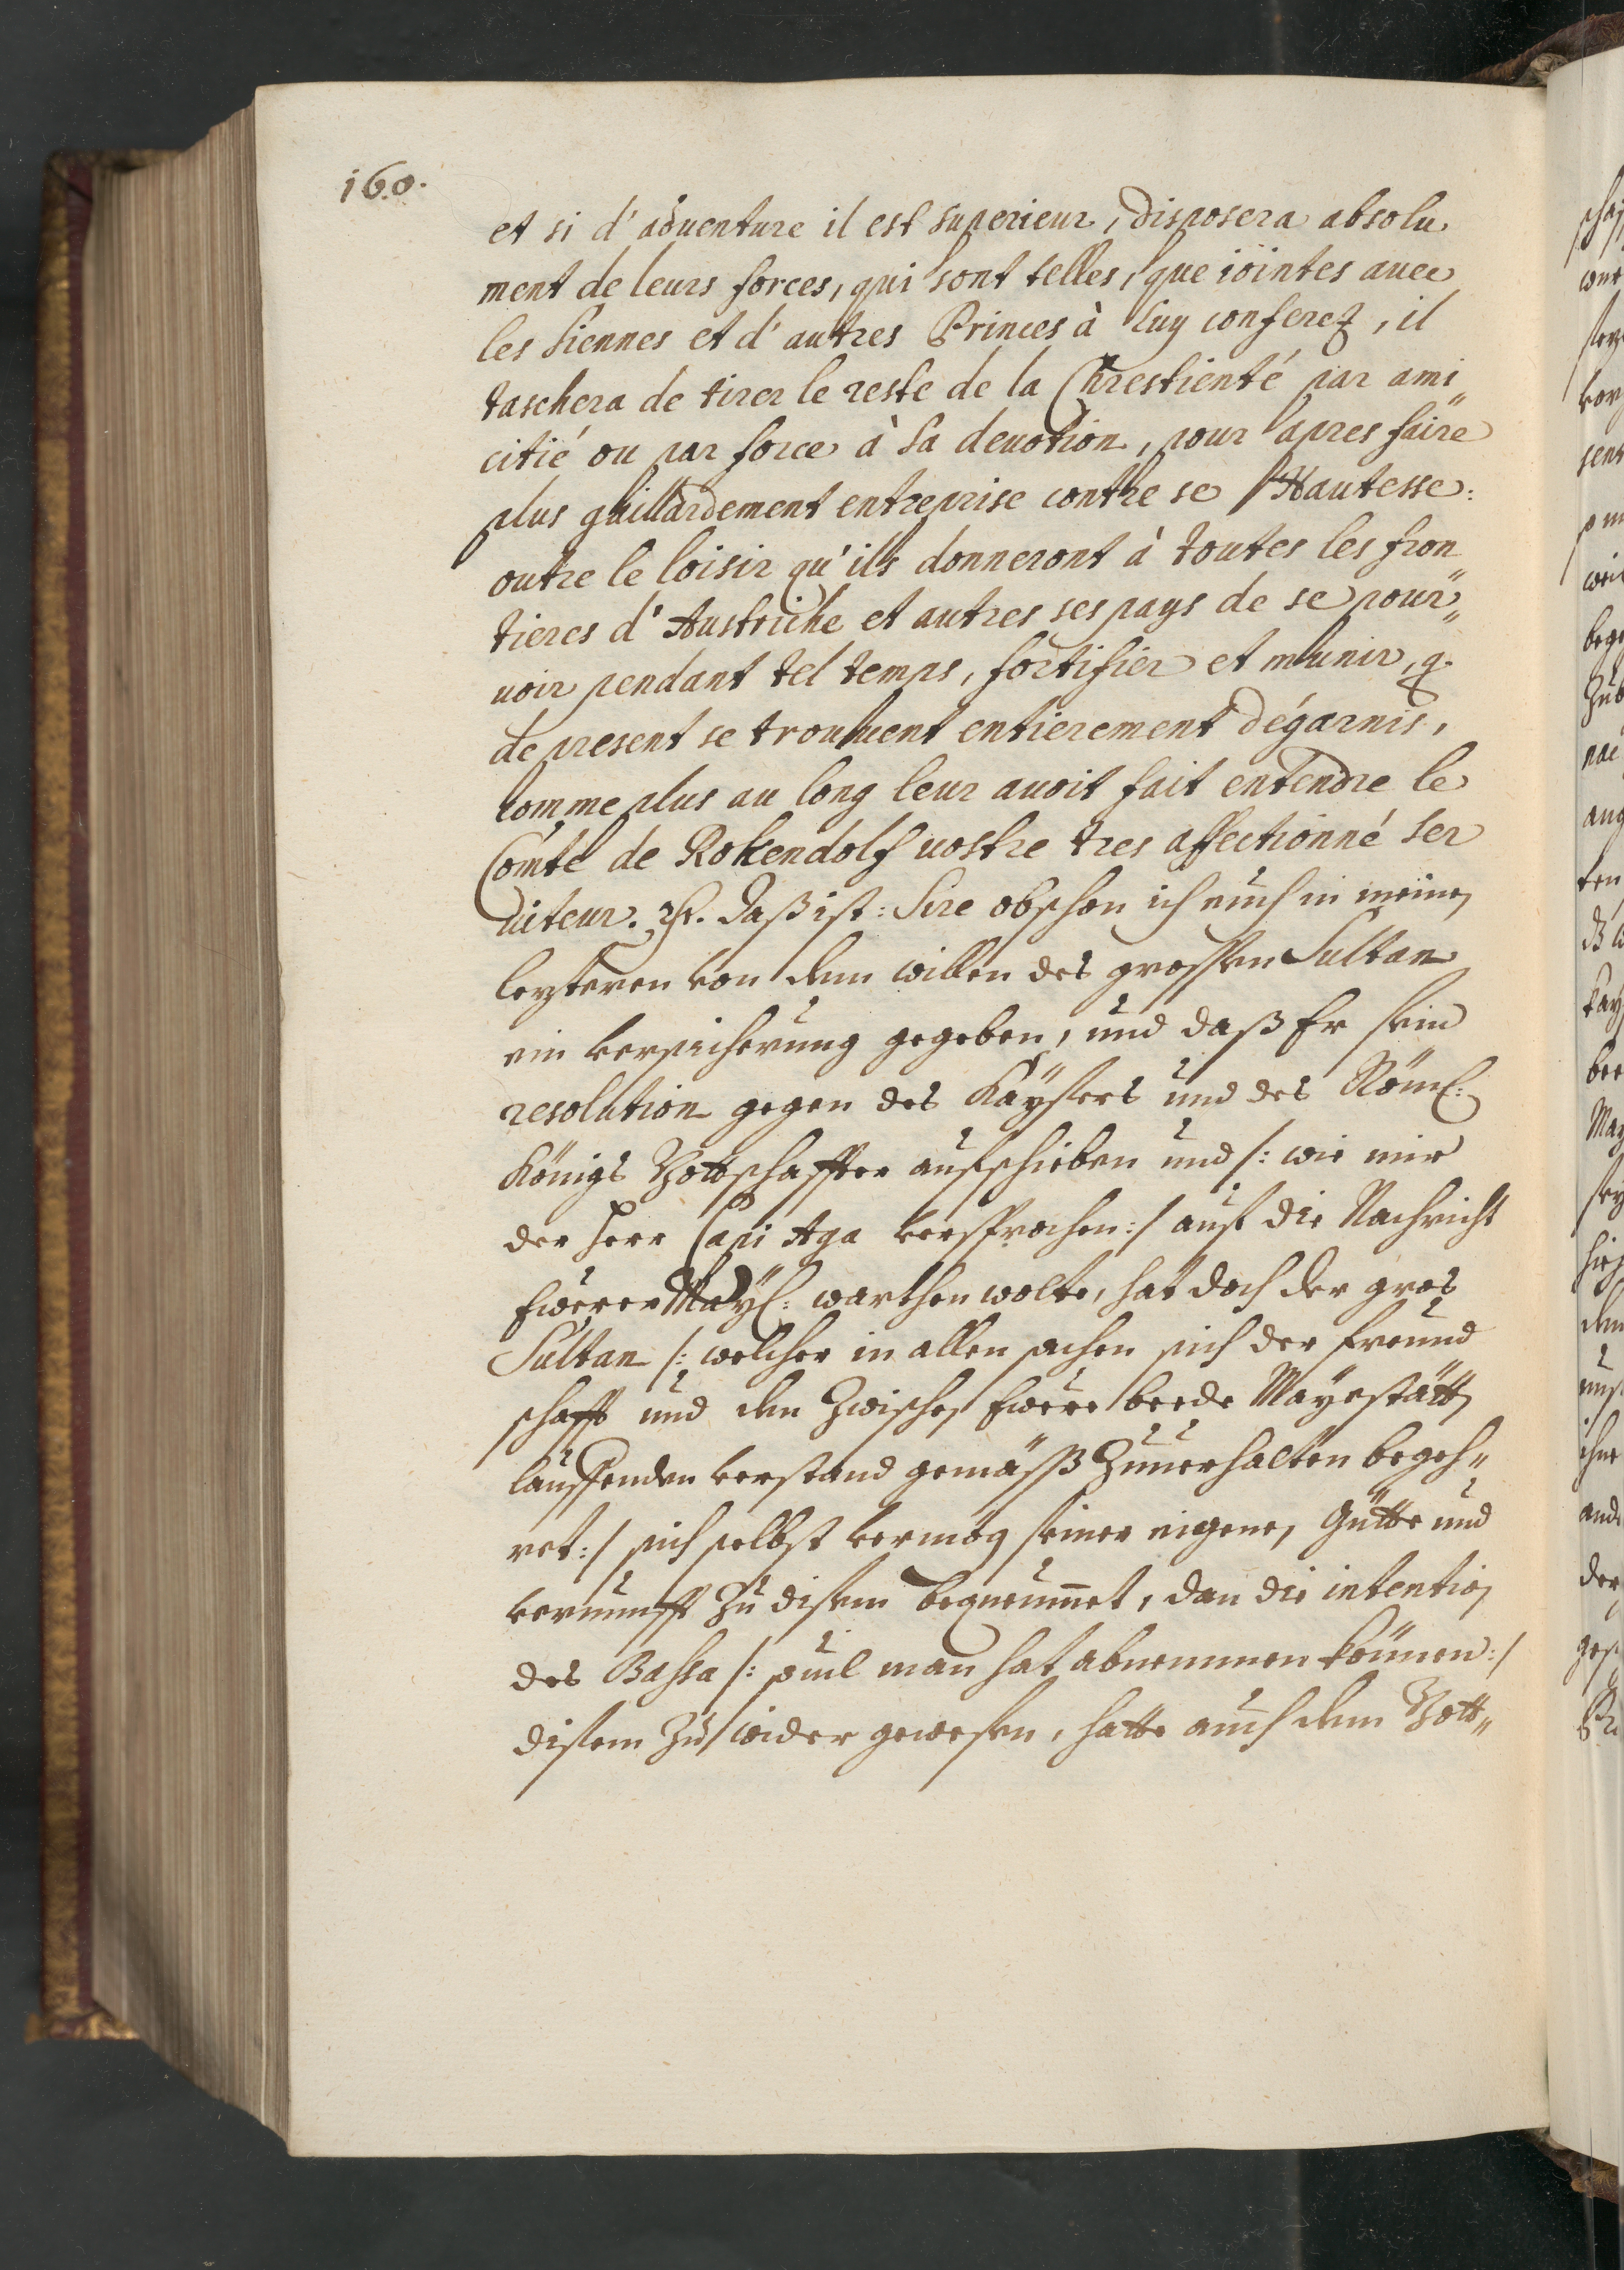 160.
et si d'aduenture il est superieur, disposera absolu
ment de leurs forces, qui sont telles, que iöintes auec
les siennes et d'autres Princes à luy conferez, il
taschera de tirer le reste de la Chrestienté par ami„
citié ou par force à sa deuotion, pour apres faire
plus gaillardement entreprise contre se Hautesse:
outre le loisir qu'ils donneront à toutes les fron„
tieres d'Austriche et autres ses pays de se pour„
uoir pendant tel temps, fortifier et munir, q.
de present se trouuent entierement dégarnis,
comme plus au long leur auoit fait entendre le
Comte de Rokendolf uostre tres affectionné ser
uiteur. Daß ist: Sire obschon ich euch in meinen
lezteren von dem willen des grossen Sultan
ein versicherung gegeben, und daß Er sein
resolution gegen des Kaÿsers und des Röml:
Königs Bottschaffter aufschieben und /: wie mir
der Herr Capi Aga versprochen :/ auf die Nachricht
Ewerer Maÿl: warthen wolte, hat doch der gros
Sultan /: welcher in allen sachen sich der freund
schafft und dem zwischen Ewere beede Mayestätten
lauffenden verstand gemäß zuuerhalten begeh„
ret :/ sich selbst vermög seiner eigenen Gütte und
vernunfft zu disem bequemmet, dan die intention
des Bassa /: souil man hat abnemmen können :/
disem zu wider gewesen, hatte auch dem Bott„